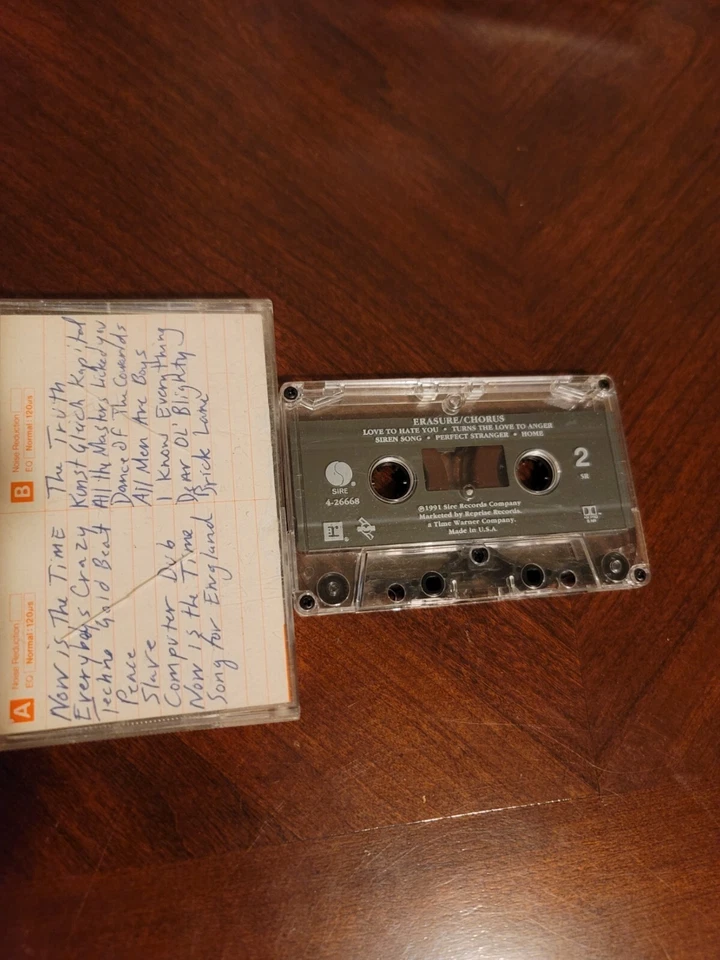 A
Noise Reduction
EQ Normal: 120us
Now is The TIME
Everybody's Crazy
Techno Gold Beat
Peace
Slave
Computer Dub
Now is the Time
Song for England
B
Noise Reduction
EQ Normal: 120us
The Truth
Kunst Gleich Kapital
All the Masters Licked You
Dance of The
All Men Are Boys
I Know Everything
Dear Ol' Blighty
Brick Lane
ERASURE/CHORUS
LOVE TO HATE YOU • TURNS THE LOVE TO ANGER
SIREN SONG • PERFECT STRANGER • HOME
SIRE
4-26668
2
SR
℗1991 Sire Records Company
Marketed by Reprise Records
a Time Warner Company.
Made in U.S.A.